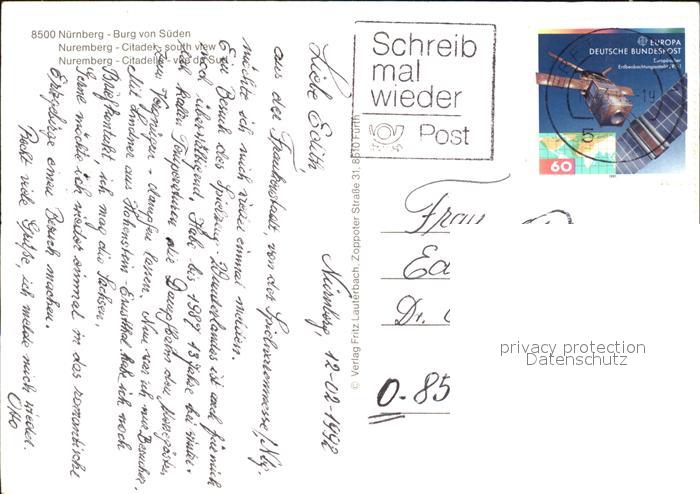 8500 Nürnberg - Burg von Süden
Nuremberg - Citadel - south view
Nuremberg - Citadelle - vue du Sud
Nürnberg, 12-02-1992
Liebe Edith,
aus der Frankenstadt, von der Spielwarenmesse, Nbg.
möchte ich mich wieder einmal melden.
Ein Besuch des Spielzeug-Wunderlandes ist auch für mich
noch überwältigend. Habe bis 1987 13 Jahre bei
kalten Temperaturen die Dampfbahn den
dampfen lassen. Nun war ich nur Besucher.
Mit Lindner aus Hohenstein-Ernstthal habe ich noch
Briefkontakt, ich mag die Sachsen,
Gerne möchte ich wieder einmal in das romantische
Erzgebirge einen Besuch machen.
Recht viele Grüße, ich melde mich wieder.
Otto
© Verlag Fritz Lauterbach, Zoppoter Straße 31, 8510 Fürth
Schreib
mal
wieder
Post
EUROPA
DEUTSCHE BUNDESPOST
Europäischer
Erdbeobachtungssatellit
60
Frau
Dr.
O-85
privacy protection
Datenschutz